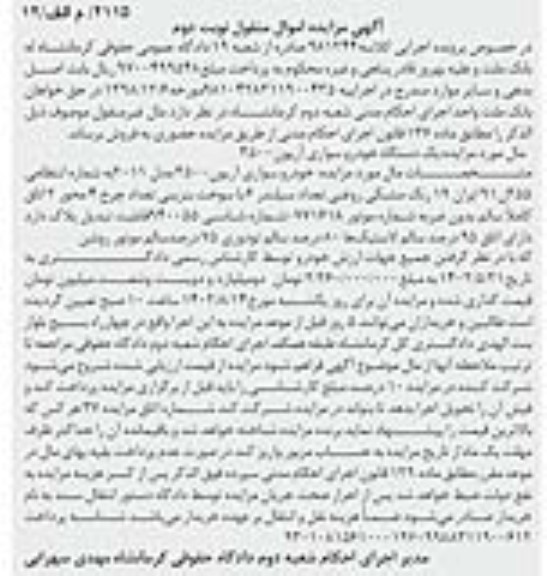 ۲۱۱۵/ م الف/۱۲
آگهی مزایده اموال منقول نوبت دوم
در خصوص پرونده اجرایی کلاسه صادره از شعبه ۱۹ دادگاه عمومی حقوقی کرمانشاه له
بانک ملت و علیه بهروز قادر پناهی و غیره محکوم به پرداخت مبلغ ریال بابت اصل
بدهی و سایر موارد مندرج در اجراییه در حق خواهان
بانک ملت واحد اجرای احکام مدنی شعبه دوم کرمانشاه در نظر دارد مال غیرمنقول موصوف ذیل
الذکر را مطابق ماده ۱۳۷ قانون اجرای احکام مدنی از طریق مزایده حضوری به فروش برساند.
مال مورد مزایده یک دستگاه خودرو سواری آریون
مشخصات مال مورد مزایده: خودرو سواری آریون مدل ۲۰۱۱ به شماره انتظامی
ایران ۱۹ رنگ مشکی روغنی تعداد سیلندر ۶ با سوخت بنزینی تعداد چرخ ۴ محور ۲ اتاق
کاملاً سالم بدون ضربه شماره موتور شماره شاسی تبدیل پلاک دارد
دارای اتاق ۹۵ درصد سالم لاستیک‌ها ۸۰ درصد سالم تودوزی ۷۵ درصد سالم موتور روشن
که با در نظر گرفتن جمیع جهات ارزش خودرو توسط کارشناس رسمی دادگستری به
تاریخ به مبلغ تومان دومیلیارد و دویست وشصت میلیون تومان
قیمت گذاری شده و مزایده آن برای روز یکشنبه مورخ ۱۴۰۲/۸/۱۴ ساعت ۱۰ صبح تعیین گردیده
است طالبین و خریداران می‌توانند ۵ روز قبل از موعد مزایده به این اجرا واقع در چهارراه بسیج بلوار
بنت الهدی دادگستری کل کرمانشاه طبقه همکف اجرای احکام شعبه دوم دادگاه حقوقی مراجعه تا
ترتیب ملاحظه آنها از مال موضوع آگهی فراهم شود مزایده از قیمت ارزیابی شده شروع می‌شود
شرکت کننده در مزایده ۱۰ درصد مبلغ کارشناسی را باید قبل از برگزاری مزایده پرداخت کند و
فیش آن را تحویل اجرا بدهد تا بتواند در مزایده شرکت کند شماره اتاق مزایده ۳۷ هر کس که
بالاترین قیمت را پیشنهاد نماید برنده مزایده شناخته خواهد شد و باقیمانده آن را حداکثر ظرف
مهلت یک ماه از تاریخ مزایده به حساب مزبور واریز کند در صورت عدم پرداخت بقیه بهای مال در
موعد مقرر مطابق ماده ۱۲۹ قانون اجرای احکام مدنی سپرده فوق الذکر پس از کسر هزینه مزایده به
نفع دولت ضبط خواهد شد پس از احراز صحت جریان مزایده توسط دادگاه دستور انتقال سند به نام
خریدار صادر می‌شود ضمناً هزینه نقل و انتقال بر عهده خریدار می‌باشد شناسه پرداخت
مدیر اجرای احکام شعبه دوم دادگاه حقوقی کرمانشاه مهدی سهرابی